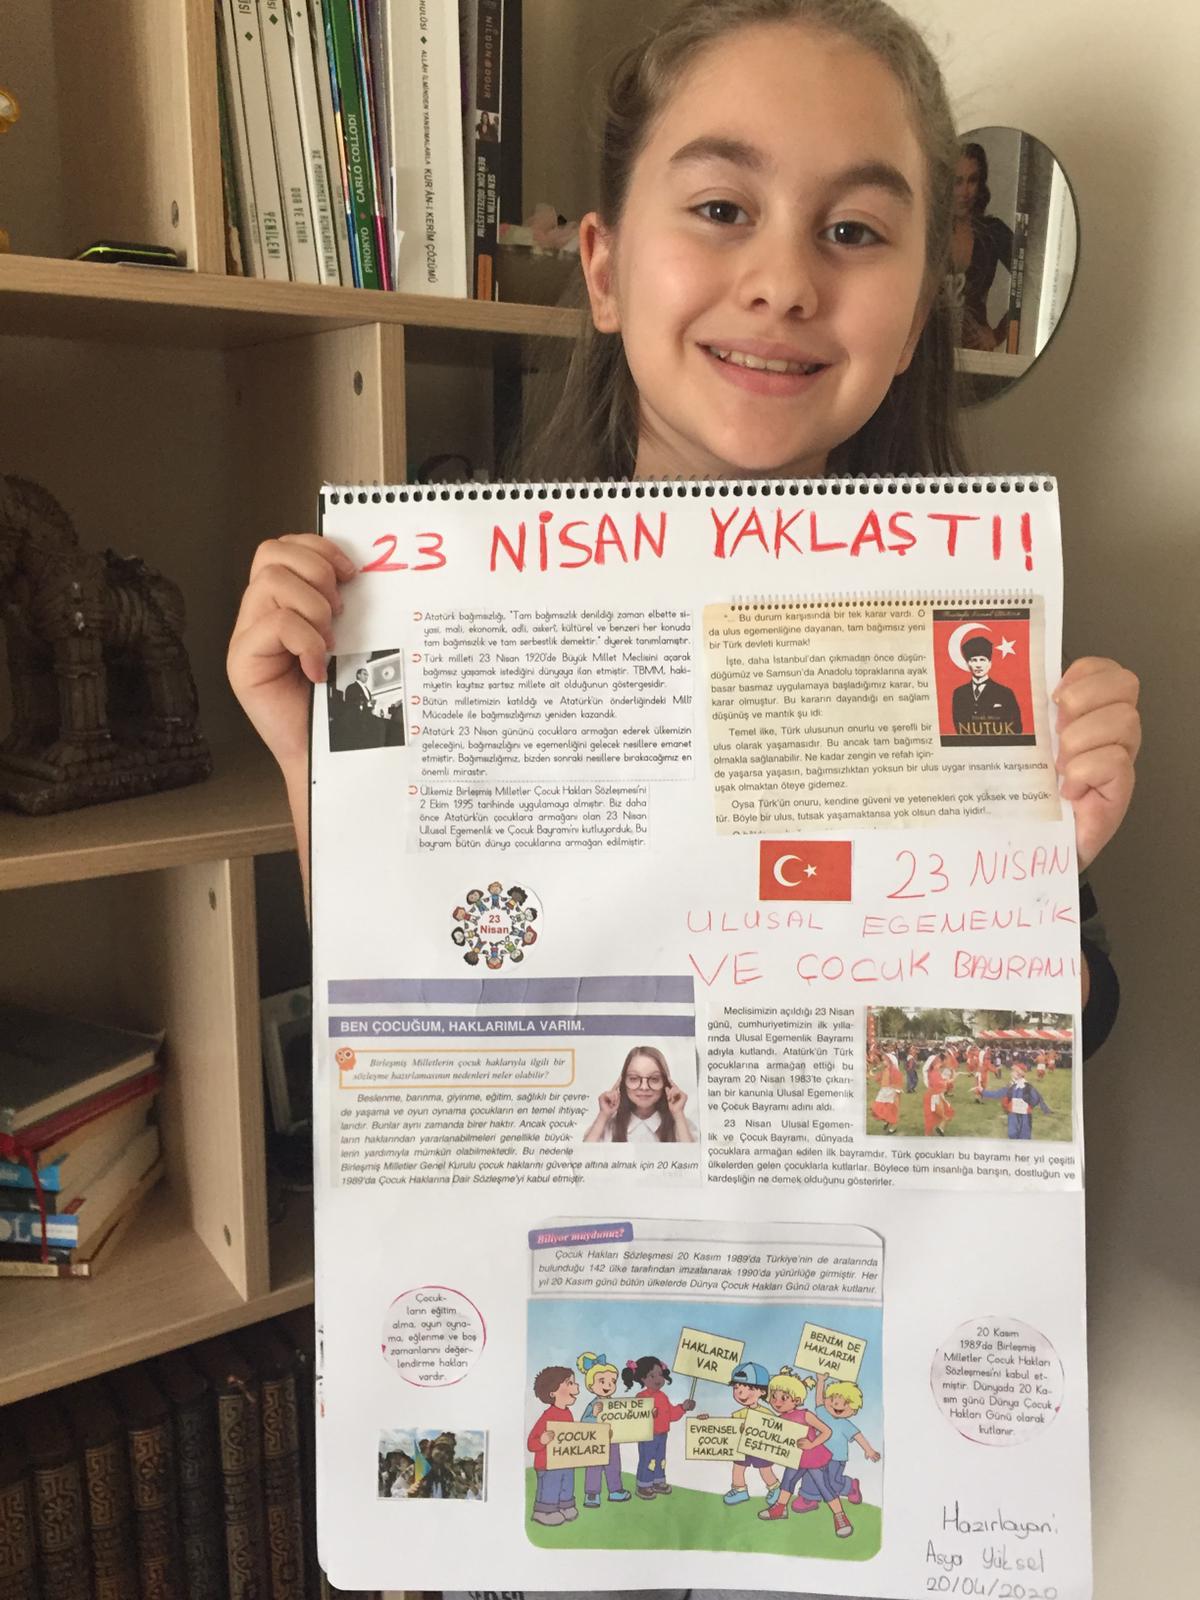 YENİLEN!
PİNOKYO • CARLO COLLODI
HULÛSİ ◆ ALLÂH İLMİNDEN YANSIMALARLA KUR'ÂN-I KERÎM ÇÖZÜMÜ
SEN GİTTİN YA
BEN ÇOK GÜZELLEŞTİM
23 NİSAN YAKLAŞTI!
Atatürk bağımsızlığı, "Tam bağımsızlık denildiği zaman elbette si-
yasi, mali, ekonomik, adli, askerî, kültürel ve benzeri her konuda
tam bağımsızlık ve tam serbestlik demektir." diyerek tanımlamıştır.
Türk milleti 23 Nisan 1920'de Büyük Millet Meclisini açarak
bağımsız yaşamak istediğini dünyaya ilan etmiştir. TBMM, haki-
miyetin kayıtsız şartsız millete ait olduğunun göstergesidir.
Bütün milletimizin katıldığı ve Atatürk'ün önderliğindeki Millî
Mücadele ile bağımsızlığımızı yeniden kazandık.
Atatürk 23 Nisan gününü çocuklara armağan ederek ülkemizin
geleceğini, bağımsızlığını ve egemenliğini gelecek nesillere emanet
etmiştir. Bağımsızlığımız, bizden sonraki nesillere bırakacağımız en
önemli mirastır.
Ülkemiz Birleşmiş Milletler Çocuk Hakları Sözleşmesi'ni
2 Ekim 1995 tarihinde uygulamaya almıştır. Biz daha
önce Atatürk'ün çocuklara armağanı olan 23 Nisan
Ulusal Egemenlik ve Çocuk Bayramı'nı kutluyorduk. Bu
bayram bütün dünya çocuklarına armağan edilmiştir.
"... Bu durum karşısında bir tek karar vardı. O
da ulus egemenliğine dayanan, tam bağımsız yeni
bir Türk devleti kurmak!
İşte, daha İstanbul'dan çıkmadan önce düşün-
düğümüz ve Samsun'da Anadolu topraklarına ayak
basar basmaz uygulamaya başladığımız karar, bu
karar olmuştur. Bu kararın dayandığı en sağlam
düşünüş ve mantık şu idi:
Temel ilke, Türk ulusunun onurlu ve şerefli bir
ulus olarak yaşamasıdır. Bu ancak tam bağımsız
olmakla sağlanabilir. Ne kadar zengin ve refah için-
de yaşarsa yaşasın, bağımsızlıktan yoksun bir ulus uygar insanlık karşısında
uşak olmaktan öteye gidemez.
Oysa Türk'ün onuru, kendine güveni ve yetenekleri çok yüksek ve büyük-
tür. Böyle bir ulus, tutsak yaşamaktansa yok olsun daha iyidir!..
NUTUK
23 NİSAN
ULUSAL EGEMENLİK
VE ÇOCUK BAYRAMI
23
Nisan
BEN ÇOCUĞUM, HAKLARIMLA VARIM.
Birleşmiş Milletlerin çocuk haklarıyla ilgili bir
sözleşme hazırlamasının nedenleri neler olabilir?
Beslenme, barınma, giyinme, eğitim, sağlıklı bir çevre-
de yaşama ve oyun oynama çocukların en temel ihtiyaç-
larıdır. Bunlar aynı zamanda birer haktır. Ancak çocuk-
ların haklarından yararlanabilmeleri genellikle büyük-
lerin yardımıyla mümkün olabilmektedir. Bu nedenle
Birleşmiş Milletler Genel Kurulu çocuk haklarını güvence altına almak için 20 Kasım
1989'da Çocuk Haklarına Dair Sözleşme'yi kabul etmiştir.
Meclisimizin açıldığı 23 Nisan
günü, cumhuriyetimizin ilk yılla-
rında Ulusal Egemenlik Bayramı
adıyla kutlandı. Atatürk'ün Türk
çocuklarına armağan ettiği bu
bayram 20 Nisan 1983'te çıkarı-
lan bir kanunla Ulusal Egemenlik
ve Çocuk Bayramı adını aldı.
23 Nisan Ulusal Egemen-
lik ve Çocuk Bayramı, dünyada
çocuklara armağan edilen ilk bayramdır. Türk çocukları bu bayramı her yıl çeşitli
ülkelerden gelen çocuklarla kutlarlar. Böylece tüm insanlığa barışın, dostluğun ve
kardeşliğin ne demek olduğunu gösterirler.
Biliyor muydunuz?
Çocuk Hakları Sözleşmesi 20 Kasım 1989'da Türkiye'nin de aralarında
bulunduğu 142 ülke tarafından imzalanarak 1990'da yürürlüğe girmiştir. Her
yıl 20 Kasım günü bütün ülkelerde Dünya Çocuk Hakları Günü olarak kutlanır.
HAKLARIM
VAR
BENİM DE
HAKLARIM
VAR!
BEN DE
ÇOCUĞUM!
ÇOCUK
HAKLARI
EVRENSEL
ÇOCUK
HAKLARI
TÜM
ÇOCUKLAR
EŞİTTİR!
Çocuk-
ların eğitim
alma, oyun oyna-
ma, eğlenme ve boş
zamanlarını değer-
lendirme hakları
vardır.
20 Kasım
1989'da Birleşmiş
Milletler Çocuk Hakları
Sözleşmesi'ni kabul et-
miştir. Dünyada 20 Ka-
sım günü Dünya Çocuk
Hakları Günü olarak
kutlanır.
Hazırlayan:
Asya Yüksel
20/04/2020